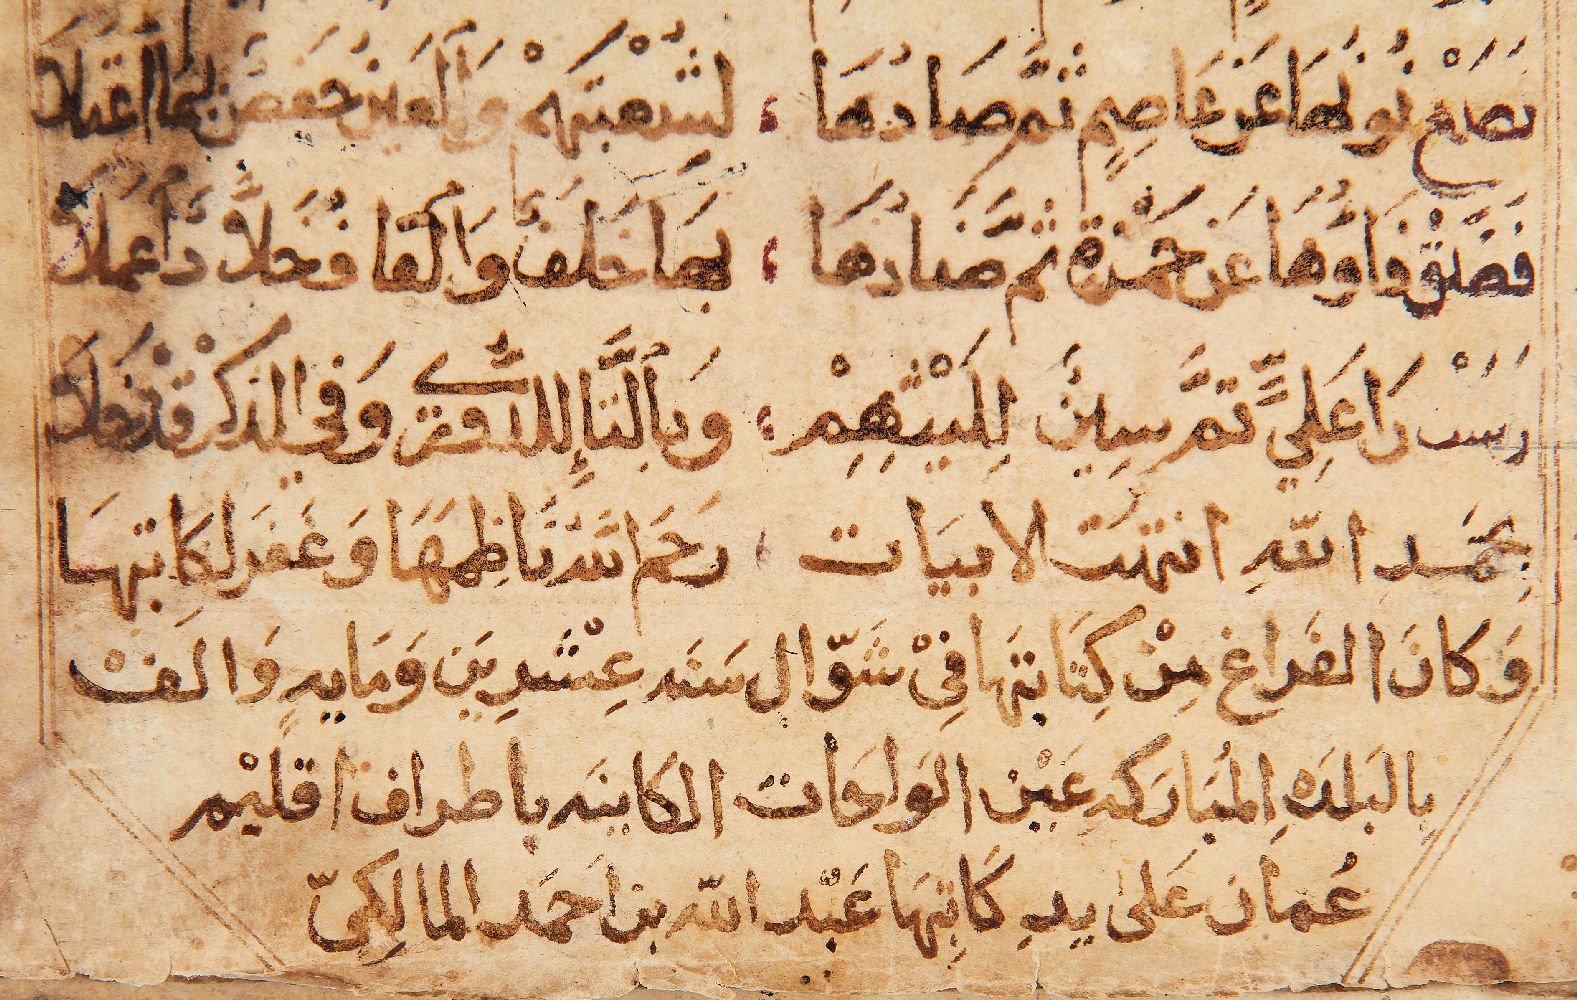 نصع نونها عن عاصم ثم صادها لشعبتهم والعين حفص بها اعتلا
فضق فاوها عن حمزة ثم ضادها بها خلف والقاف خلاد عملا
رست را علي ثم سين لليثهم وبالتا للدوري وفي الذكر قد خلا
بحمد الله انتهت لابيات رحم الله ناظمها وغفر لكاتبها
وكان الفراغ من كتابتها في شوال سنه عشرين ومايه والف
بالبلده المباركه عين الواحات الكاينه باطراف اقليم
عمان على يد كاتبها عبد الله بن احمد المالكي